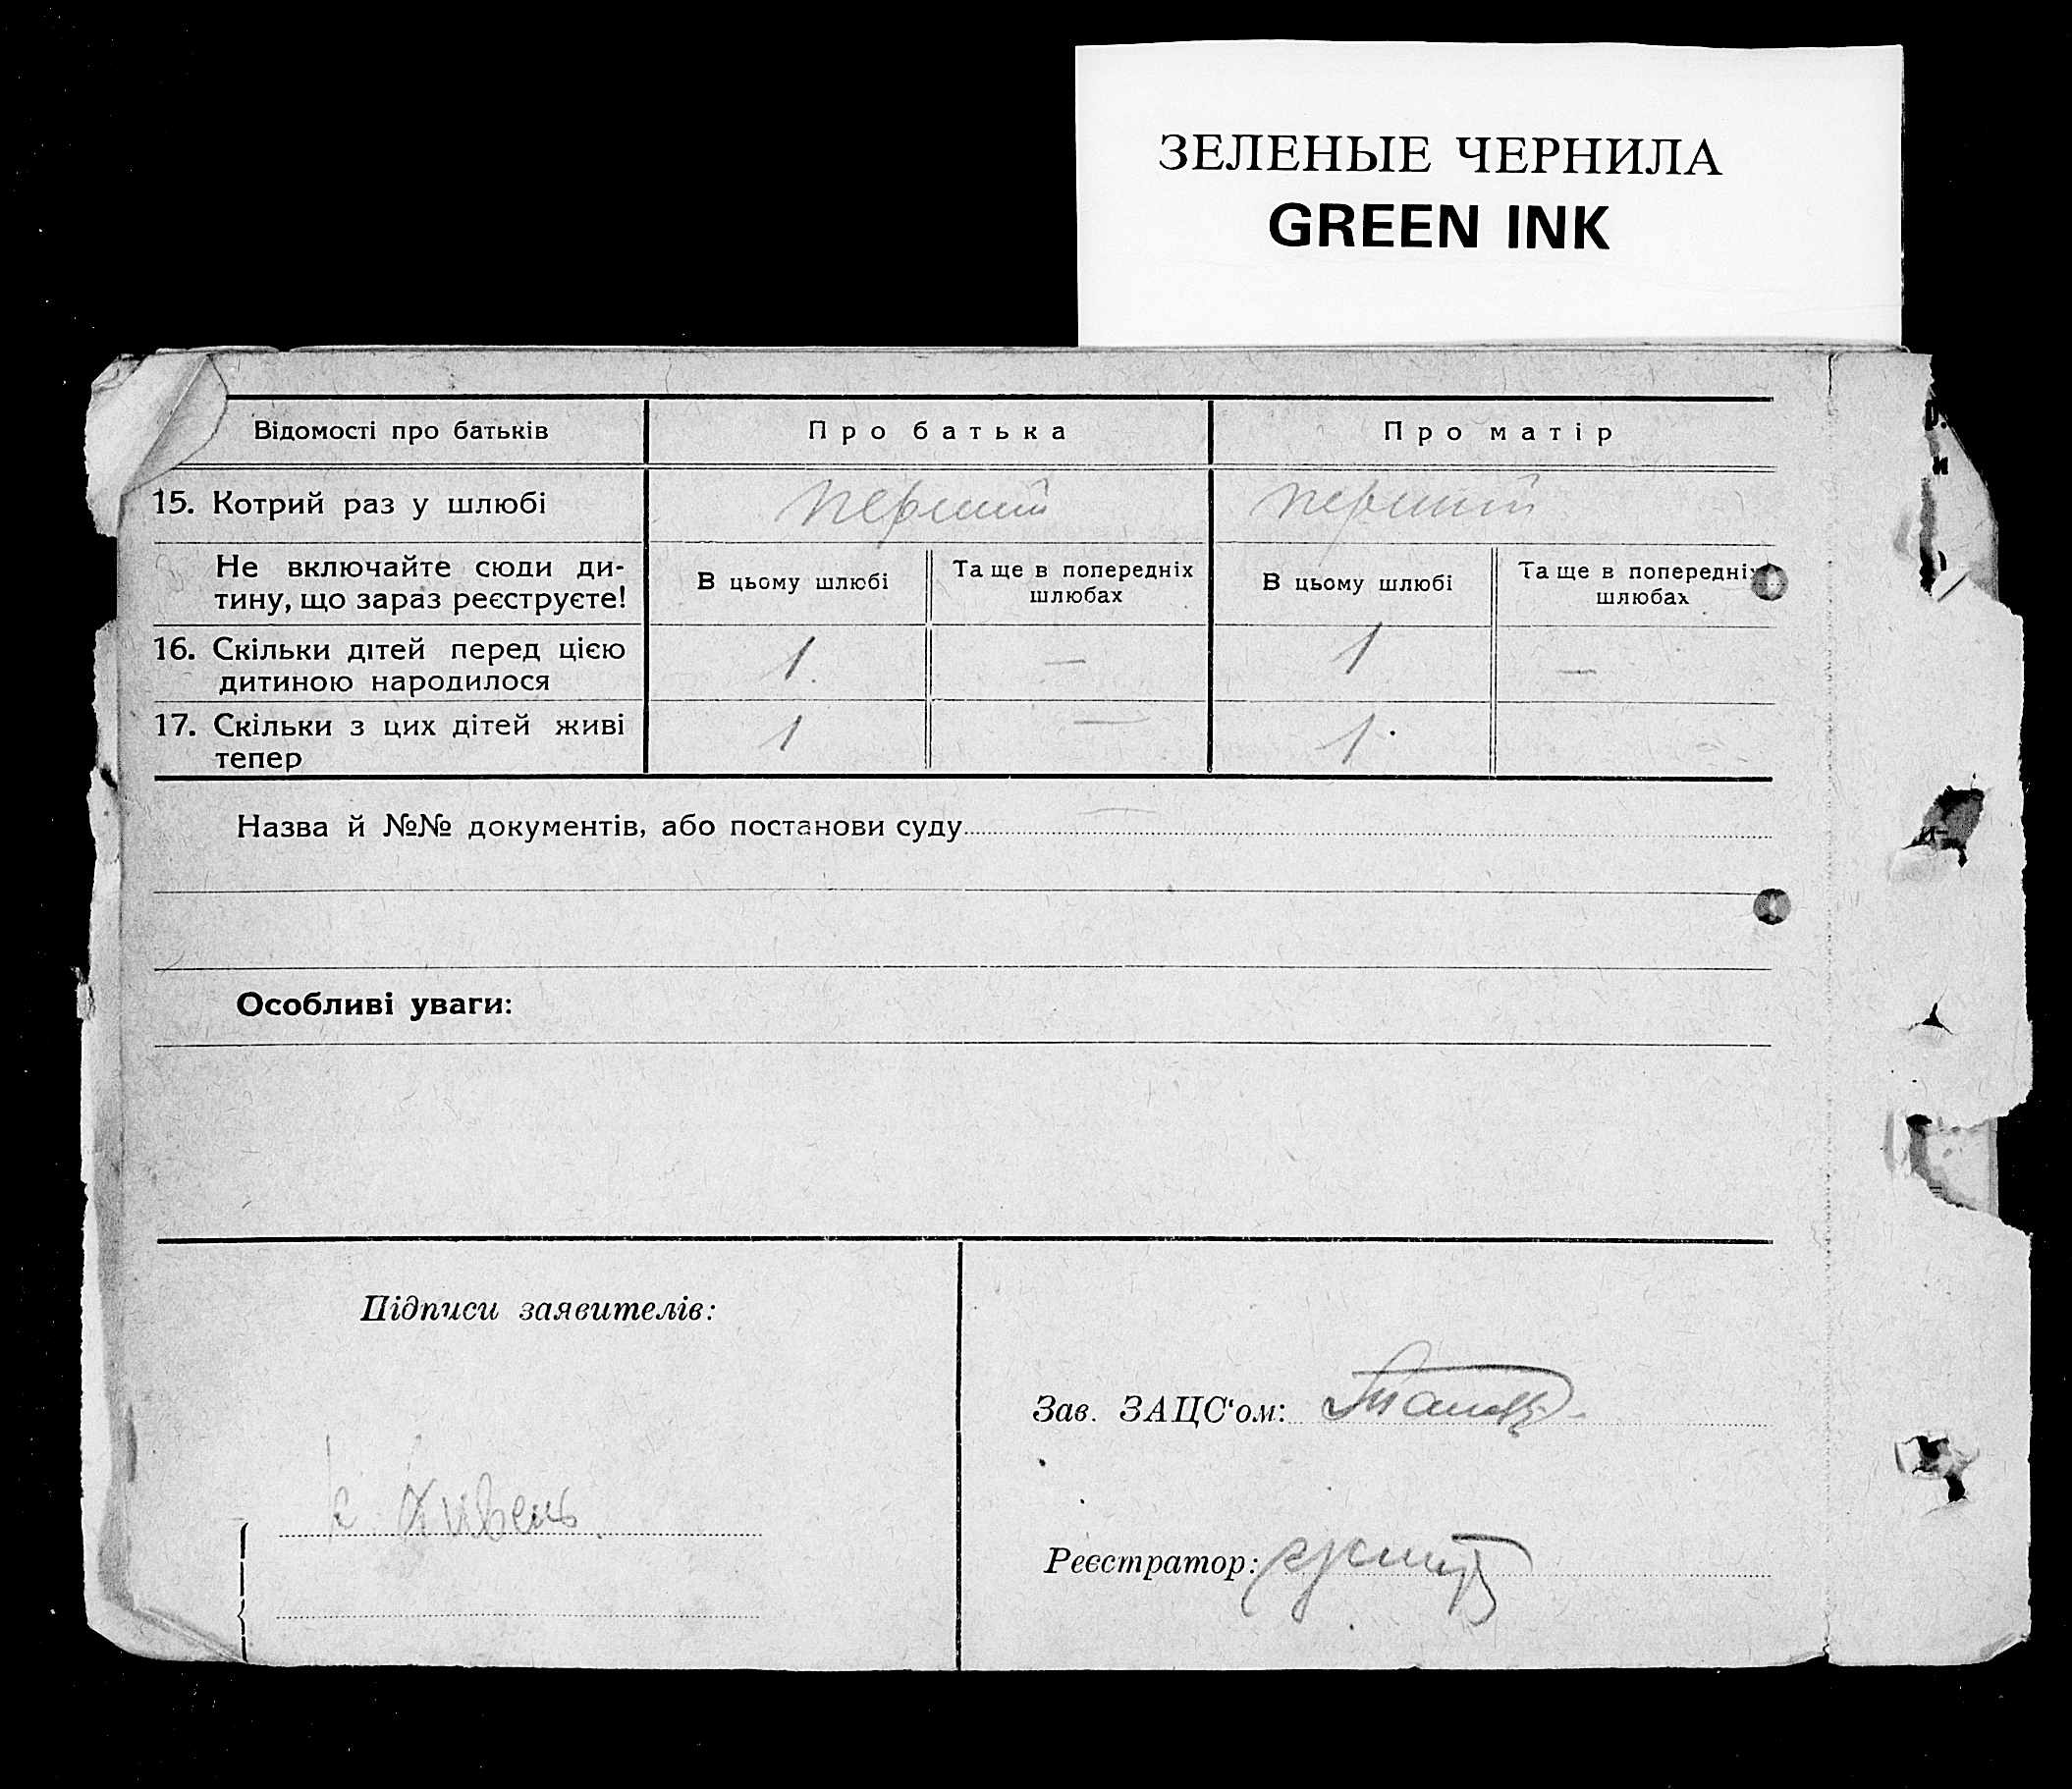 ЗЕЛЕНЫЕ ЧЕРНИЛА
GREEN INK
Відомості про батьків
Про батька
Про матір
15. Котрий раз у шлюбі
перший
перший
Не включайте сюди ди-
тину, що зараз реєструєте!
В цьому шлюбі
Та ще в попередніх
шлюбах
В цьому шлюбі
Та ще в попередніх
шлюбах
16. Скільки дітей перед цією
дитиною народилося
1
—
1
—
17. Скільки з цих дітей живі
тепер
1
—
1
Назва й №№ документів, або постанови суду
—
Особливі уваги:
Підписи заявителів:
Зав. ЗАЦС‘ом:
Реєстратор: